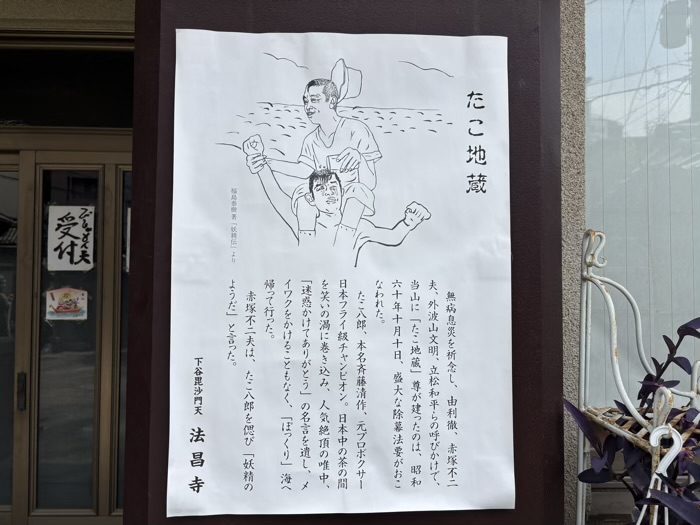 たこ地蔵
福島泰樹著「妖精伝」より
無病息災を祈念し、由利徹、赤塚不二
夫、外波山文明、立松和平らの呼びかけで、
当山に「たこ地蔵」尊が建ったのは、昭和
六十年十月十日、盛大な除幕法要がおこ
なわれた。
たこ八郎、本名斉藤清作、元プロボクサー
日本フライ級チャンピオン。日本中の茶の間
を笑いの渦に巻き込み、人気絶頂の唯中、
「迷惑かけてありがとう」の名言を遺し、メ
イワクをかけることもなく、「ぽっくり」海へ
帰って行った。
赤塚不二夫は、たこ八郎を偲び「妖精の
ようだ」と言った。
下谷毘沙門天 法昌寺
受付